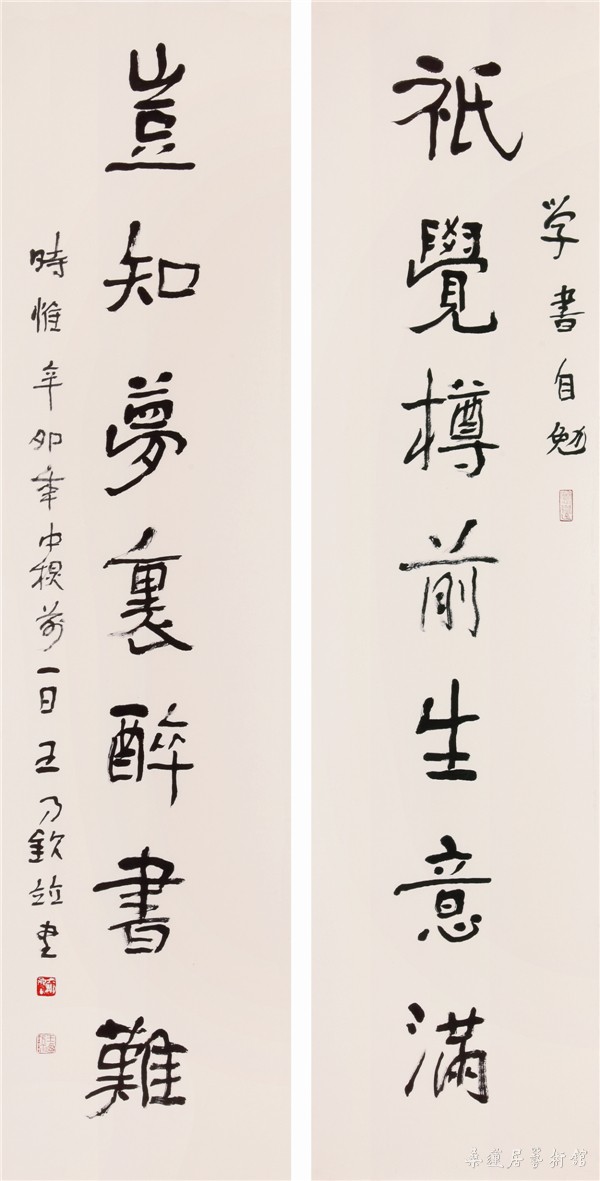 学書自勉
祇覺樽前生意滿
豈知夢裏醉書難
時惟辛卯年中秋前一日王乃欽並書
菜蘧居藝術館